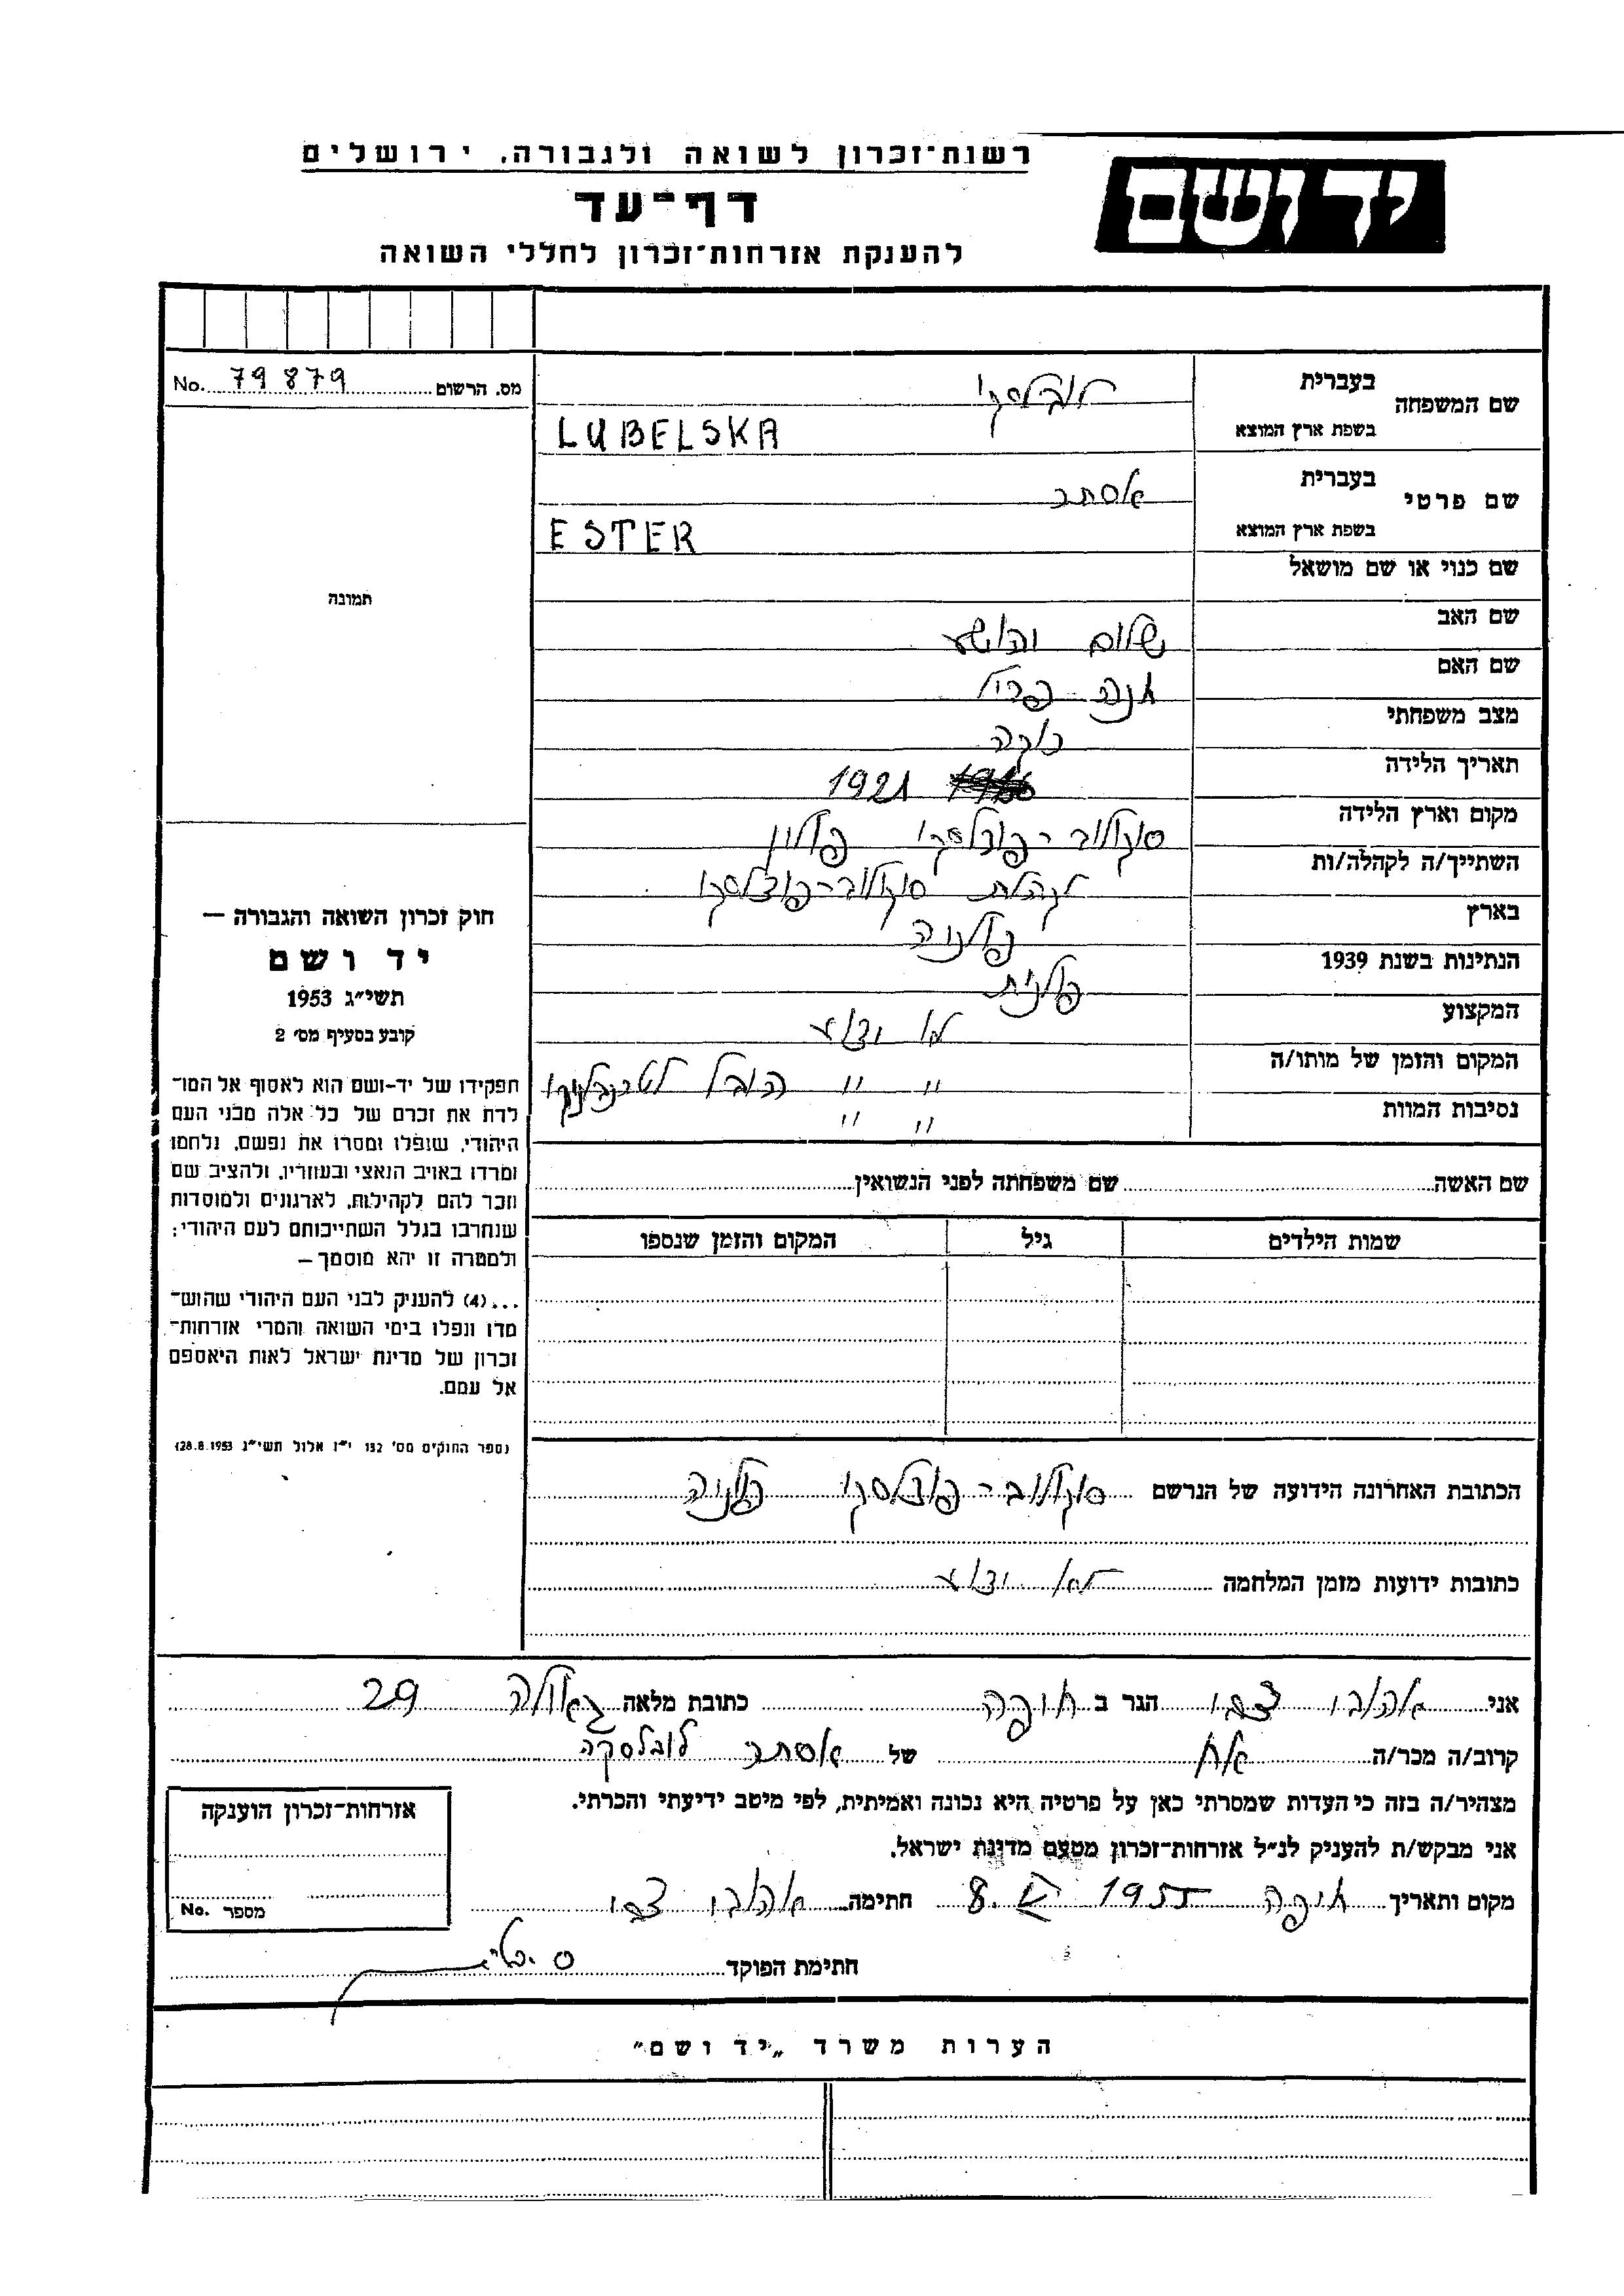 רשות־זכרון לשואה ולגבורה, ירושלים
יד ושם
דף־עד
להענקת אזרחות־זכרון לחללי השואה
מס. הרשום 79879 No.
שם המשפחה
בעברית לובלסקי
בשפת ארץ המוצא LUBELSKA
שם פרטי
בעברית אסתר
בשפת ארץ המוצא ESTER
שם כנוי או שם מושאל
שם האב שלום יהושע
שם האם חנה פרל
מצב משפחתי רוקה
תאריך הלידה 1921
מקום וארץ הלידה סוקולוב-פודלסקי פולין
השתייך/ה לקהלה/ות לקהלת סוקולוב-פודלסקי
בארץ פולניה
הנתינות בשנת 1939 פולנית
המקצוע לא ידוע
המקום והזמן של מותו/ה " " הובל לטרבלינקי
נסיבות המוות " "
תמונה
חוק זכרון השואה והגבורה —
יד ושם
תשי"ג 1953
קובע בסעיף מס' 2
תפקידו של יד-ושם הוא לאסוף אל המו־
לדת את זכרם של כל אלה מבני העם
היהודי, שנפלו ומסרו את נפשם, נלחמו
ומרדו באויב הנאצי ובעוזריו, ולהציב שם
וזכר להם לקהילות, לארגונים ולמוסדות
שנחרבו בגלל השתייכותם לעם היהודי;
ולמטרה זו יהא מוסמך —
...(4) להעניק לבני העם היהודי שהוש־
מדו ונפלו בימי השואה והמרי אזרחות־
זכרון של מדינת ישראל לאות היאספם
אל עמם.
(ספר החוקים מס' 132 י"ז אלול תשי"ג 28.8.1953)
שם האשה שם משפחתה לפני הנשואין
שמות הילדים גיל המקום והזמן שנספו
הכתובת האחרונה הידועה של הנרשם סוקולוב-פודלסקי פולניה
כתובות ידועות מזמן המלחמה לא ידוע
אני אהובי צבי הגר ב חיפה כתובת מלאה גאולה 29
קרוב/ה מכר/ה אח של אסתר לובלסקה
מצהיר/ה בזה כי העדות שמסרתי כאן על פרטיה היא נכונה ואמיתית, לפי מיטב ידיעתי והכרתי.
אני מבקש/ת להעניק לנ"ל אזרחות־זכרון מטעם מדינת ישראל.
מקום ותאריך חיפה 1955 8. חתימה אהובי צבי
חתימת הפוקד
אזרחות־זכרון הוענקה
מספר No.
הערות משרד „יד ושם"